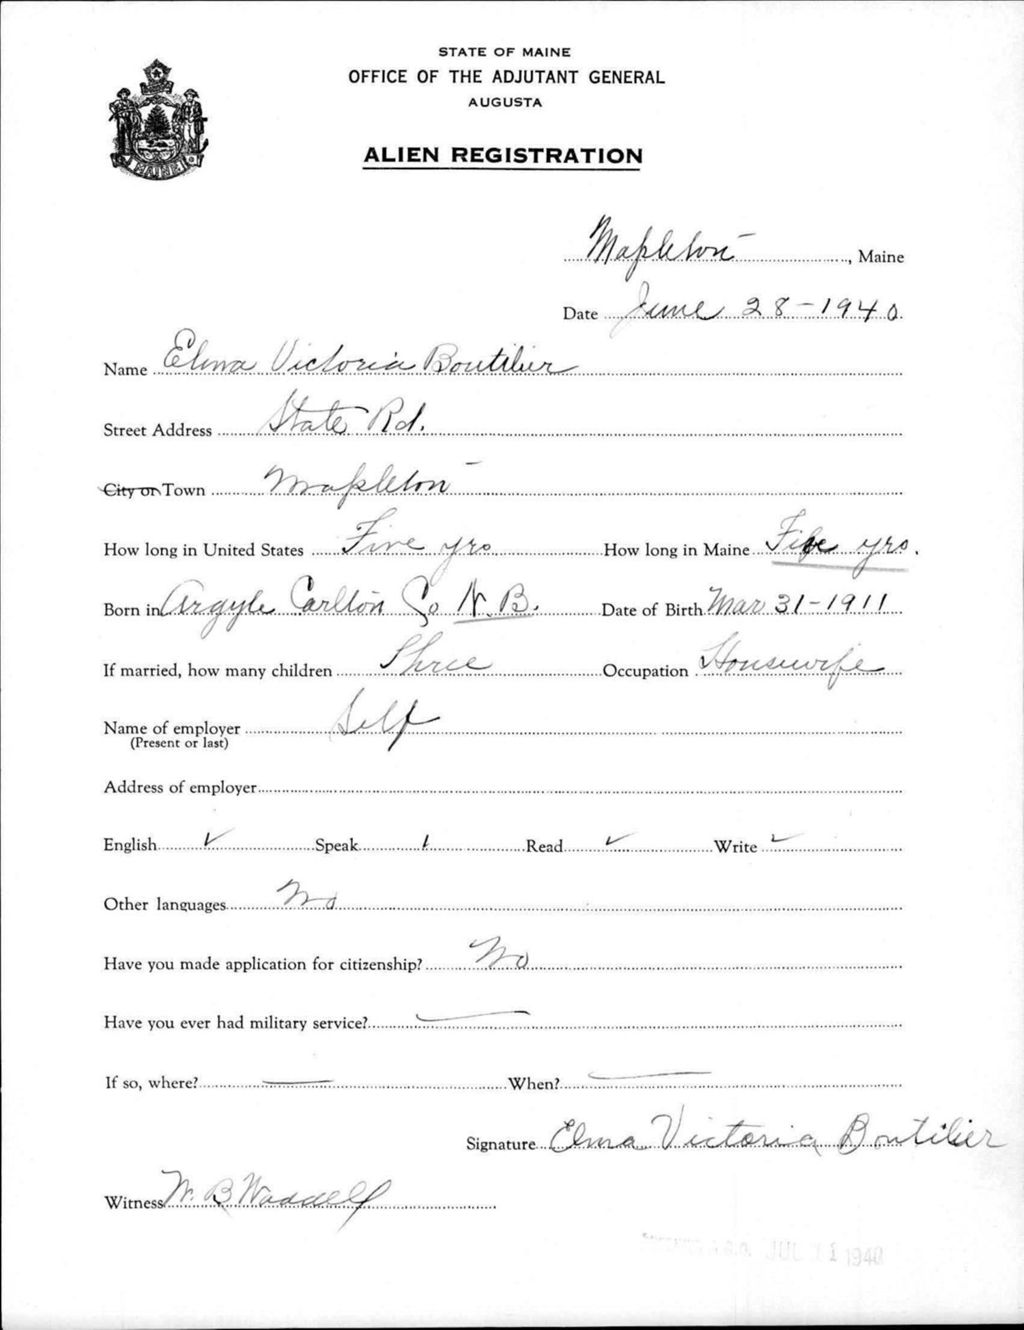 STATE OF MAINE
OFFICE OF THE ADJUTANT GENERAL
AUGUSTA
ALIEN REGISTRATION
MAINE
Mapleton, Maine
Date June 28-1940
Name Elma Victoria Boutilier
Street Address State Rd.
City or Town Mapleton
How long in United States Five yrs. How long in Maine Five yrs.
Born in Argyle Carlton Co N.B. Date of Birth Mar 31-1911
If married, how many children Three Occupation Housewife
Name of employer Self
(Present or last)
Address of employer
English ✓ Speak ✓ Read ✓ Write ✓
Other languages No
Have you made application for citizenship? No
Have you ever had military service? —
If so, where? — When? —
Signature Elma Victoria Boutilier
Witness W. B. Waddell
A.G.O. JUL 11 1940